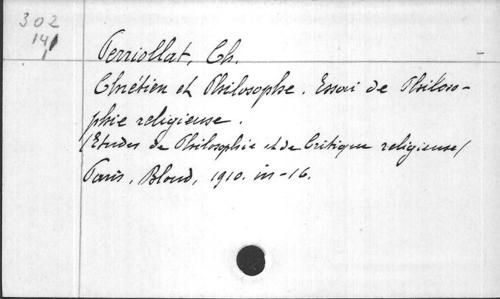 302
141
Perriollat, Ch.
Chrétien et Philosophe. Essai de Philoso-
phie religieuse.
(Etudes de Philosophie et de Critique religieuse)
Paris, Bloud, 1910. in-16.